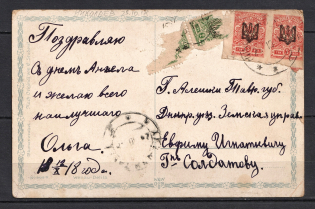 Поздравляю
Съ днемъ Ангела
и желаю всего
наилучшаго
Ольга.
18 10/X 18 год.
Г. Алешки Тавр. губ.
Днепр. уѣз. Земская управ.
Евфиму Игнатьевичу
Гну Солдатову.